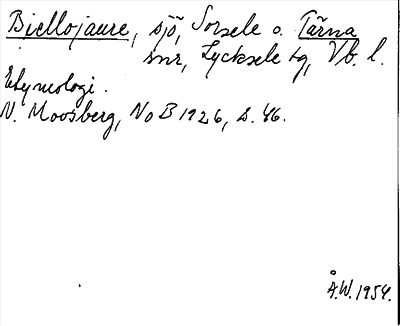 Biellojaure, sjö, Sorsele o. Tärna
snr, Lycksele tg, Vb. l.
Etymologi.
N. Moosberg, NoB 1926, s. 46.
Å.W. 1954.